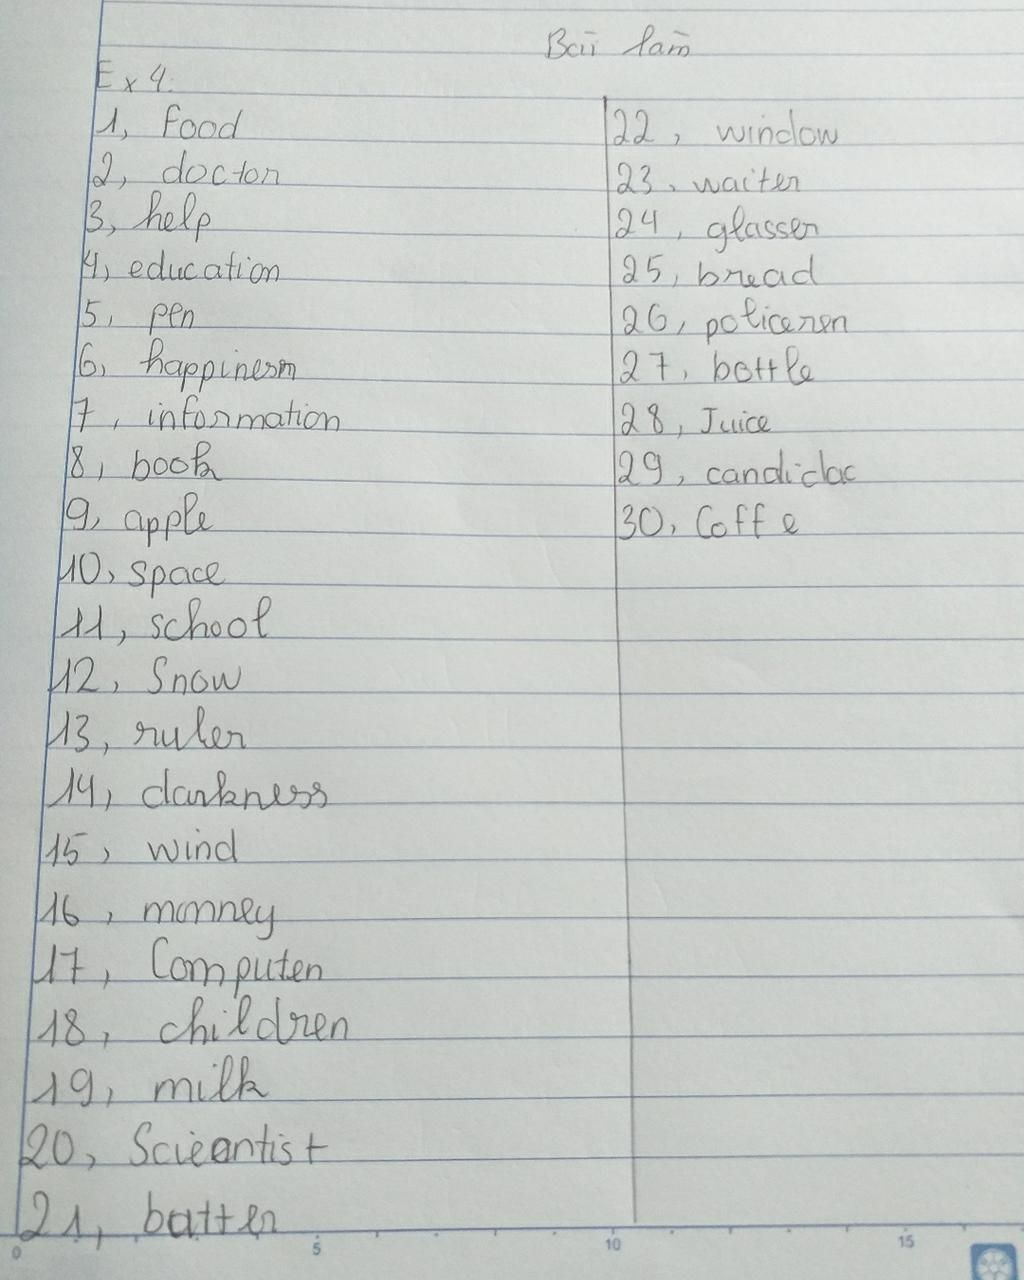 Bài làm
Ex 4:
1, food
2, doctor
3, help
4, education
5, pen
6, happinesm
7, information
8, book
9, apple
10, space
11, school
12, Snow
13, ruler
14, darkness
15, wind
16, monney
17, Computer
18, children
19, milk
20, Scieentist
21, batter
22, window
23, waiter
24, glasser
25, bread
26, policeren
27, bottle
28, Juice
29, candidac
30, Coffe
0 5 10 15